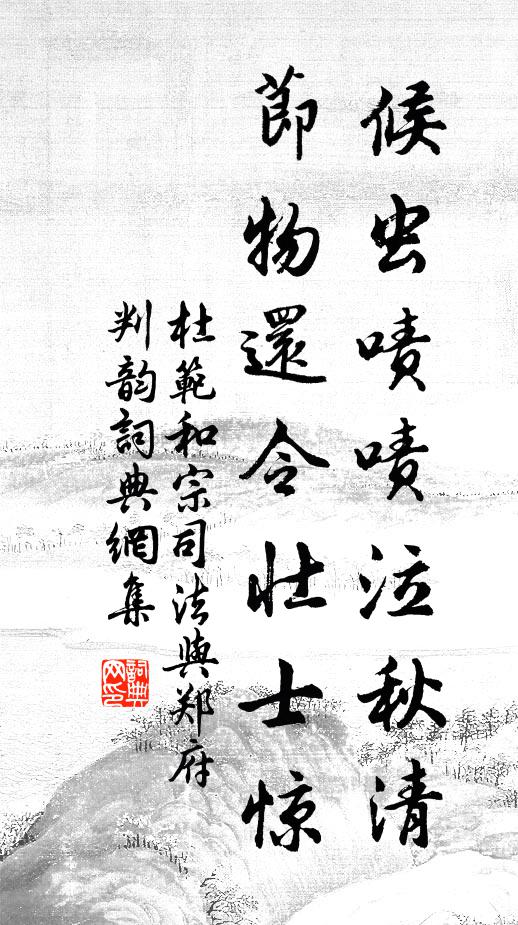 候虫嘖嘖泣秋清
節物還令壮士惊
杜範和宗司法與郑府
判韵詞典網集
詞典网印